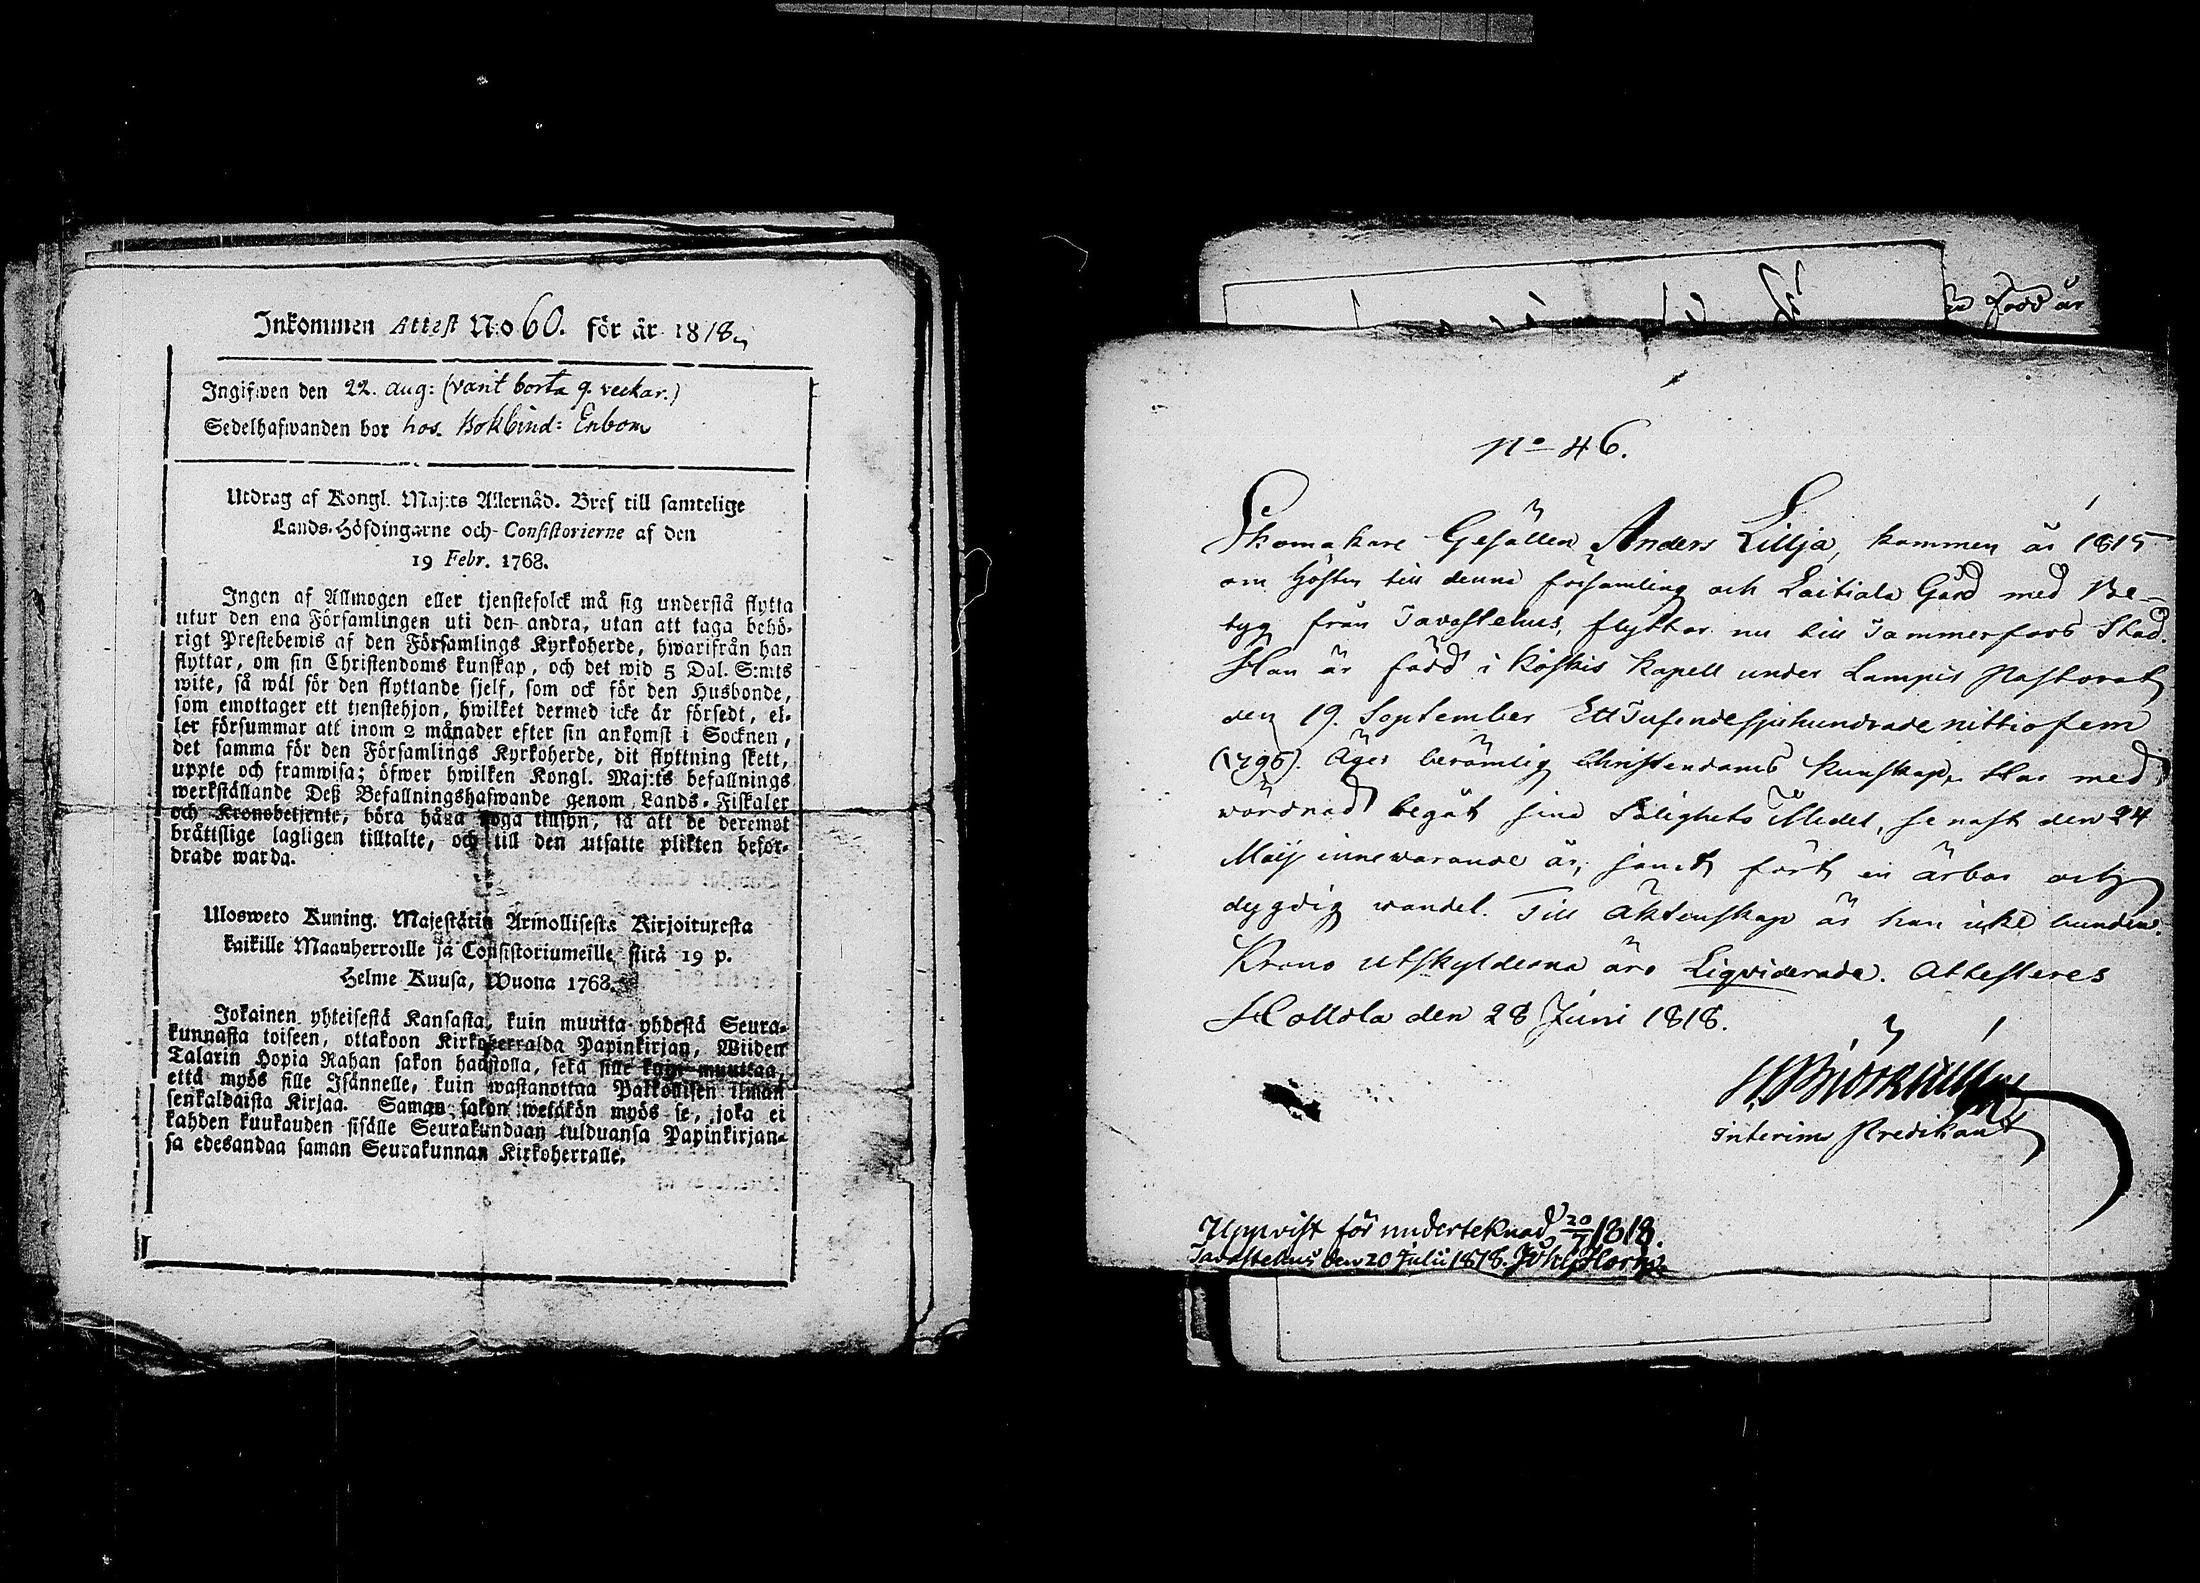 Inkommen Attest No 60. för år 1818.
Ingifwen den 22. aug: (varit borta 9. veckar.)
Sedelhafwanden bor hos. Bokbind: Enbom
Utdrag af Kongl. Maj:ts Allernåd. Bref till samtelige
Lands-Höfdingarne och Consistorierne af den
19 Febr. 1768.
Ingen af Allmogen eller tjenstefolck må sig understå flytta
utur den ena Församlingen uti den andra, utan att taga behö-
rigt Prestebewis af den Församlings Kyrkoherde, hwarifrån han
flyttar, om sin Christendoms kunskap, och det wid 5 Dal. S:mts
wite, så wäl för den flyttande sjelf, som ock för den Husbonde,
som emottager ett tjenstehjon, hwilket dermed icke är försedt, el-
ler försummar att inom 2 månader efter sin ankomst i Socknen,
det samma för den Församlings Kyrkoherde, dit flyttning skett,
uppte och framwisa; öfwer hwilken Kongl. Maj:ts befallnings
werkställande Deß Befallningshafwande genom Lands-Fiskaler
och Kronobetjente, böra hafwa noga tillsyn, så att de deremot
bråttslige lagligen tilltalte, och till den utsatte plikten befor-
drade warda.
Ulosweto Kuning. Majestätin Armollisesta Kirjoituxesta
kaikille Maanherroille ja Consistoriumeille, siitä 19 p.
Helme Kuusa, Wuona 1768.
Jokainen yhteisestä Kansasta, kuin muutta yhdestä Seura-
kunnasta toiseen, ottakoon Kirkoherralda Papinkirjan, Wiiden
Talarin Hopia Rahan sakon haastolla, sekä sille kuin muuttaa,
että myös sille Isännelle, kuin wastanottaa Palkollisen ilman
senkaldaista Kirjaa. Saman sakon wetäkön myös se, joka ei
kahden kuukauden sisälle Seurakundaan tulduansa Papinkirjan-
sa edesandaa saman Seurakunnan Kirkoherralle.
född år
No 46.
Skomakare Gesällen Anders Lillja, kommen år 1815
om hösten till denna församling och Laitiala Gård med Be-
tyg från Tavastehus, flyttar nu till Tammerfors Stad.
Han är född i Koskis Kapell under Lampis Pastorat
den 19. September Ett Tusendesjuhundrade nittiofem
(1795). Äger berömlig Christendoms Kunskap, Har med
wördnad begåt sina Salighets Medel, senast den 24
Maij innewarande år, samt fört en ärbar och
dygdig wandel. Till Äktenskap är han icke bunden.
Krono utskylderna äro Liqviderade. Attesteres
Hollola den 28 Juni 1818.
Interims Predikant
Uppvist för undertecknad 20/7 1818.
Tavastehus den 20 Julii 1818. Joh: